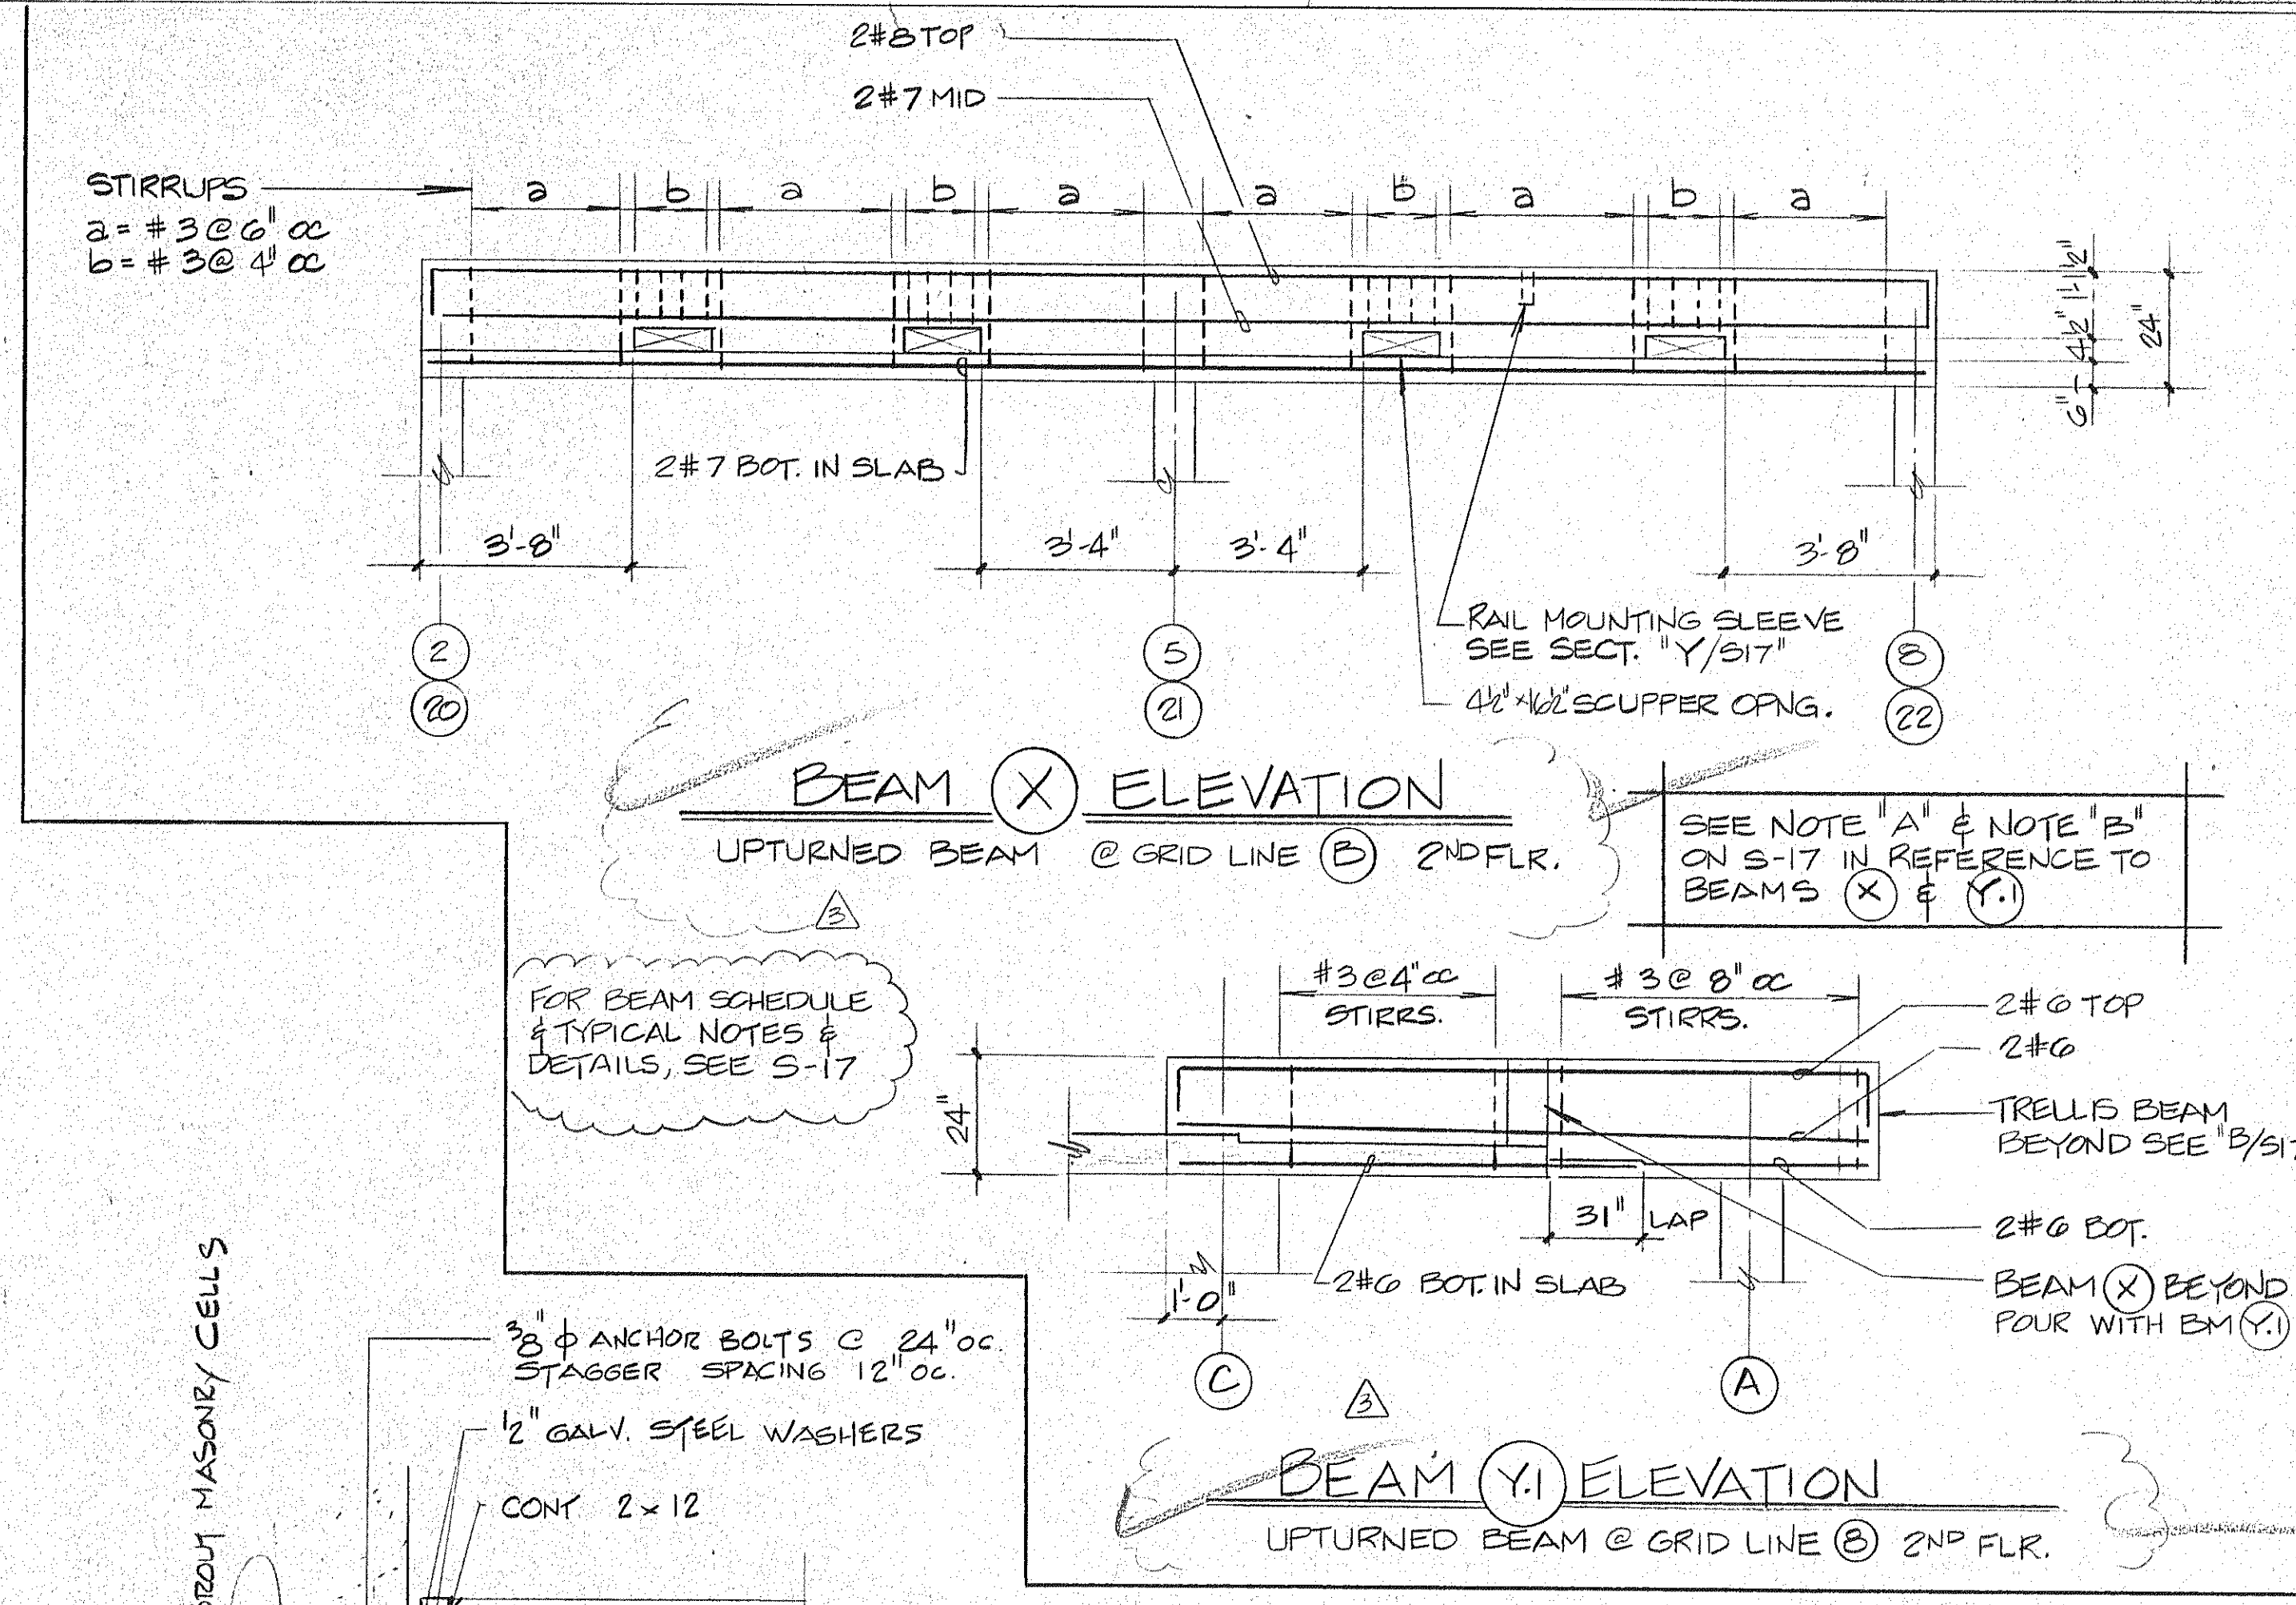 2#8 TOP
2#7 MID
STIRRUPS
a = #3 @ 6" OC
b = #3 @ 4" OC
a b a b a a b a b a
1'-1½"
4½"
6"
24"
2#7 BOT. IN SLAB
3'-8" 3'-4" 3'-4" 3'-8"
RAIL MOUNTING SLEEVE
SEE SECT. "Y/S17"
4½"x16½" SCUPPER OPNG.
2 5 8
20 21 22
BEAM X ELEVATION
UPTURNED BEAM @ GRID LINE B 2ND FLR.
3
SEE NOTE "A" & NOTE "B"
ON S-17 IN REFERENCE TO
BEAMS X & Y.1
FOR BEAM SCHEDULE
& TYPICAL NOTES &
DETAILS, SEE S-17
#3@4"OC
STIRRS.
#3@8"OC
STIRRS.
2#6 TOP
2#6
24"
TRELLIS BEAM
BEYOND SEE "B/S17
31" LAP
2#6 BOT.
2#6 BOT. IN SLAB
1'-0"
BEAM X BEYOND
POUR WITH BM Y.1
C A
3
BEAM Y.1 ELEVATION
UPTURNED BEAM @ GRID LINE 8 2ND FLR.
3/8" ϕ ANCHOR BOLTS @ 24" OC.
STAGGER SPACING 12" OC.
1/2" GALV. STEEL WASHERS
CONT 2x12
MASONRY CELLS